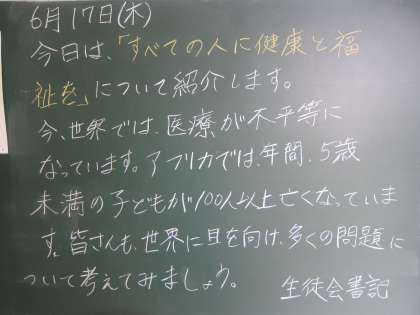 6月17日(木)
今日は、「すべての人に健康と福
祉を」について紹介します。
今、世界では、医療が不平等に
なっています。アフリカでは、年間、5歳
未満の子どもが100人以上亡くなっていま
す。皆さんも、世界に目を向け、多くの問題に
ついて考えてみましょう。
生徒会書記